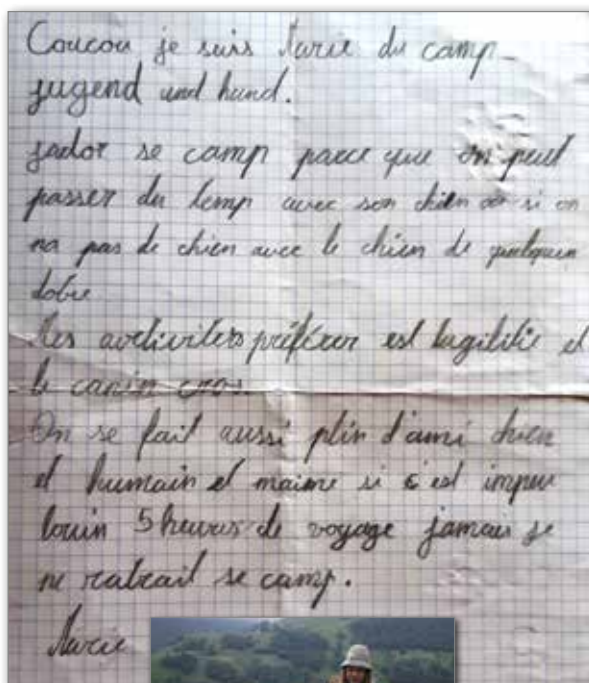 Coucou je suis Marie du camp
jugend und hund.
jador se camp parce que on peut
passer du temp avec son chien ou si on
na pas de chien avec le chien de quelquin
dotre
Mes avctiviters préférer est lagilitie et
le canin cros.
On se fait aussi plin d'ami chien
et humain et maime si c'est impeu
louin 5 heures de voyage jamais je
ne ratrait se camp.
Marie